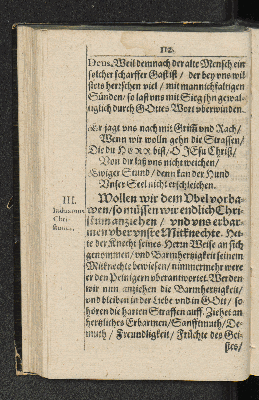 112.
Deus. Weil demnach der alte Mensch ein
solcher scharffer Gast ist / der bey vns wil
stets herrschen viel / mit mannichfaltigen
Sünden / so last vns mit Sieg jhn gewal-
tiglich durch GOttes Wort vberwinden.
Er jagt vns nach mit Grim̃ vnd Rach /
Wenn wir wolln gehn die Straffen /
Die du HERR bist / O JEsu Christ /
Von dir laß vns nicht weichen /
Ewiger Stund / denn kan der Hund
Vnser Seel nicht erschleichen.
III.
Induamus
Chri-
stum.
Wollen wir dem Vbel vorba-
wen / so müssen wir endlich Chri-
stum anziehen / vnd vns erbar-
men vber vnsre Mitknechte. Het-
te der Knecht seines Herrn Weise an sich
genommen / vnd Barmhertzigkeit seinem
Mitknechte bewiesen / nimmermehr were
er den Peinigern vberantwortet. Werden
wir nun anziehen die Barmhertzigkeit /
vnd bleiben in der Liebe vnd in GOtt / so
hören die harten Straffen auff. Ziehet an
hertzliches Erbarmen / Sanfftmuth / De-
muth / Freundligkeit / Früchte des Gei-
stes /